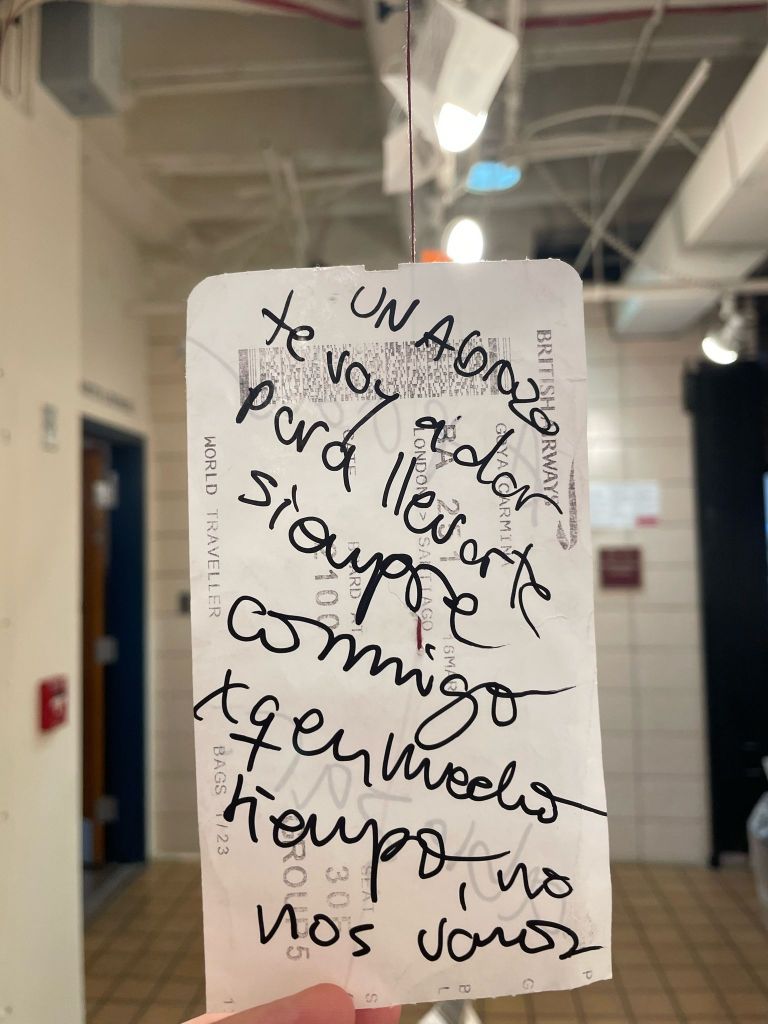 UN Abrazo
te voy a dar
para llevarte
siempre
conmigo
xq en mucho
tiempo, no
nos vamos
BRITISH
GOYA/CARMIN
BA 251
LONDON> SANTIAGO 16MAR
WORLD TRAVELLER
BAGS 1/23
GROUP 5
SEAT